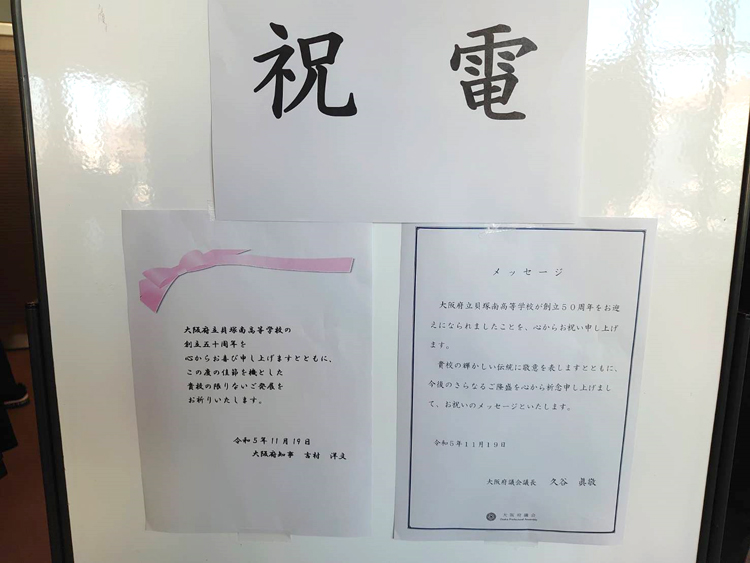 祝 電
大阪府立貝塚南高等学校の
創立五十周年を
心からお喜び申し上げますとともに、
この度の佳節を機とした
貴校の限りないご発展を
お祈りいたします。
令和5年11月19日
大阪府知事 吉村 洋文
メッセージ
大阪府立貝塚南高等学校が創立50周年をお迎
えになられましたことを、心からお祝い申し上げ
ます。
貴校の輝かしい伝統に敬意を表しますとともに、
今後のさらなるご隆盛を心から祈念申し上げまし
て、お祝いのメッセージといたします。
令和5年11月19日
大阪府議会議長 久谷 眞敬
大阪府議会